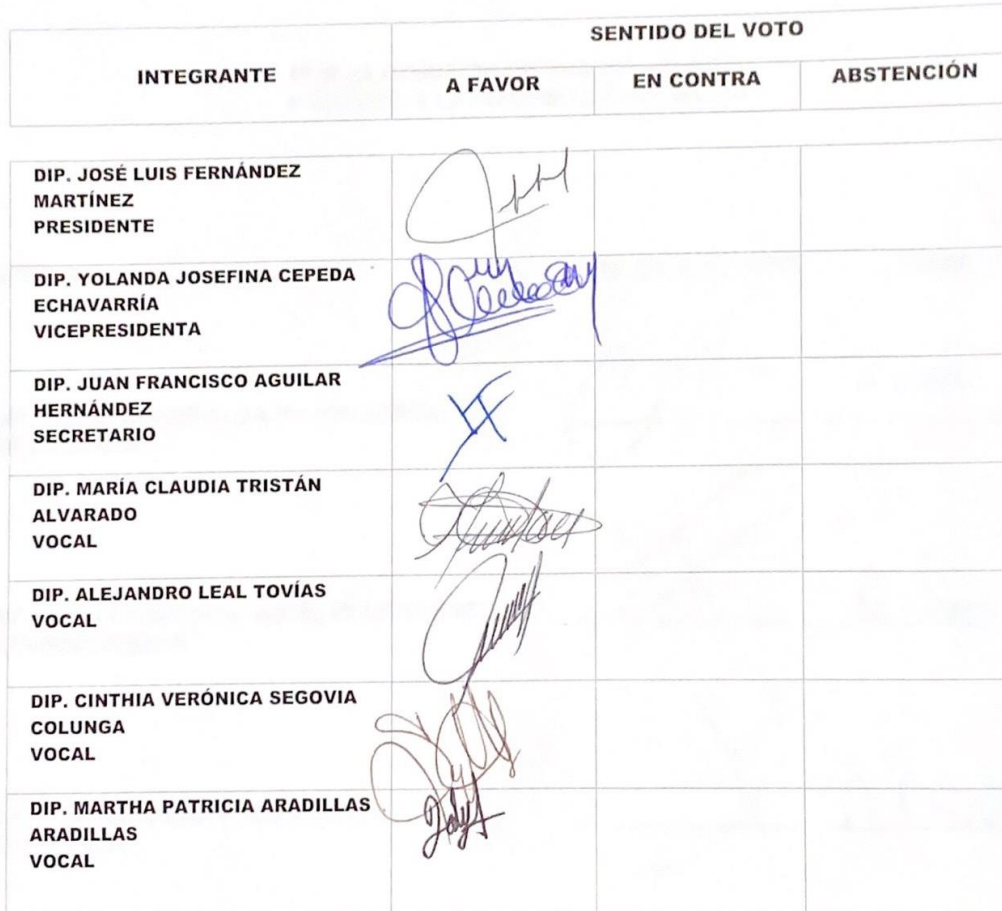 SENTIDO DEL VOTO
INTEGRANTE
A FAVOR
EN CONTRA
ABSTENCIÓN
DIP. JOSÉ LUIS FERNÁNDEZ
MARTÍNEZ
PRESIDENTE
DIP. YOLANDA JOSEFINA CEPEDA
ECHAVARRÍA
VICEPRESIDENTA
DIP. JUAN FRANCISCO AGUILAR
HERNÁNDEZ
SECRETARIO
DIP. MARÍA CLAUDIA TRISTÁN
ALVARADO
VOCAL
DIP. ALEJANDRO LEAL TOVÍAS
VOCAL
DIP. CINTHIA VERÓNICA SEGOVIA
COLUNGA
VOCAL
DIP. MARTHA PATRICIA ARADILLAS
ARADILLAS
VOCAL